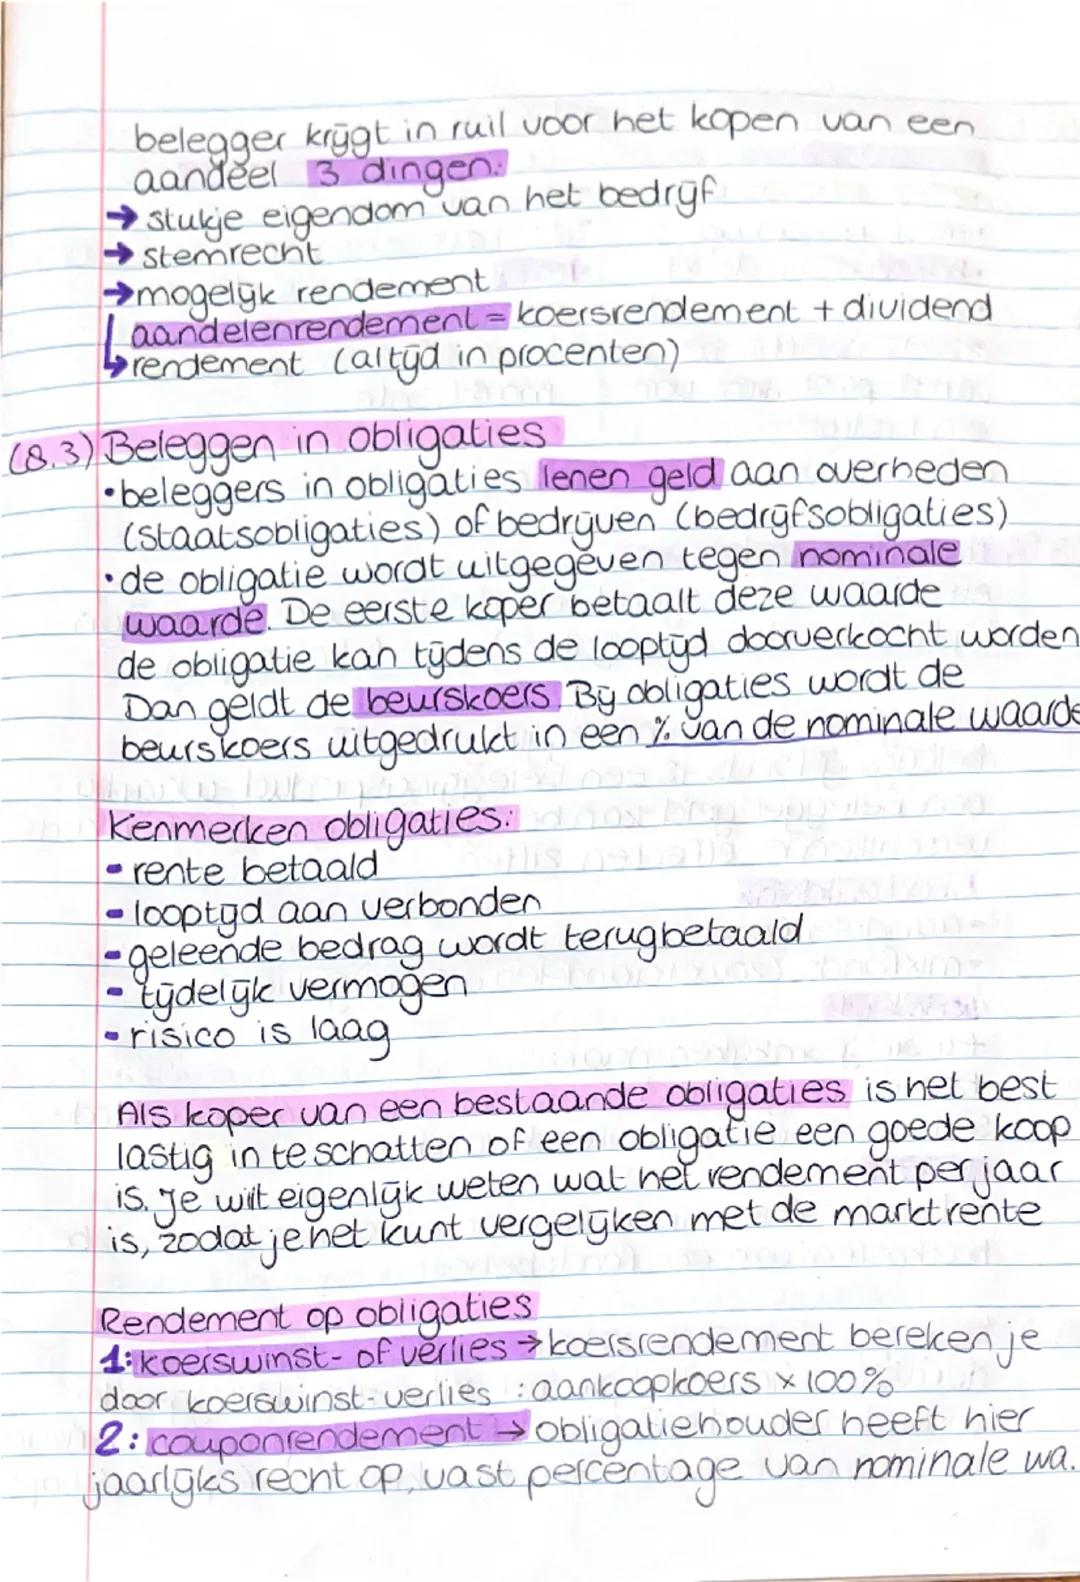 belegger krijgt in ruil voor het kopen van een
aandeel 3 dingen:
→ stukje eigendom van het bedrijf
→ stemrecht
→ mogelijk rendement
aandelenrendement = koersrendement + dividend
↳ rendement (altijd in procenten)
(8.3) Beleggen in obligaties
• beleggers in obligaties lenen geld aan overheden
(staatsobligaties) of bedrijven (bedrijfsobligaties)
• de obligatie wordt uitgegeven tegen nominale
waarde. De eerste koper betaalt deze waarde
de obligatie kan tijdens de looptijd doorverkocht worden
Dan geldt de beurskoers. Bij obligaties wordt de
beurskoers uitgedrukt in een % van de nominale waarde
Kenmerken obligaties:
- rente betaald
- looptijd aan verbonden
- geleende bedrag wordt terugbetaald
- tijdelijk vermogen
- risico is laag
Als koper van een bestaande obligaties is het best
lastig in te schatten of een obligatie een goede koop
is. Je wilt eigenlijk weten wat het rendement per jaar
is, zodat je het kunt vergelijken met de marktrente
Rendement op obligaties
1: koerswinst- of verlies → koersrendement bereken je
door koerswinst-verlies : aankoopkoers x 100%
2: couponrendement → obligatiehouder heeft hier
jaarlijks recht op, vast percentage van nominale wa.